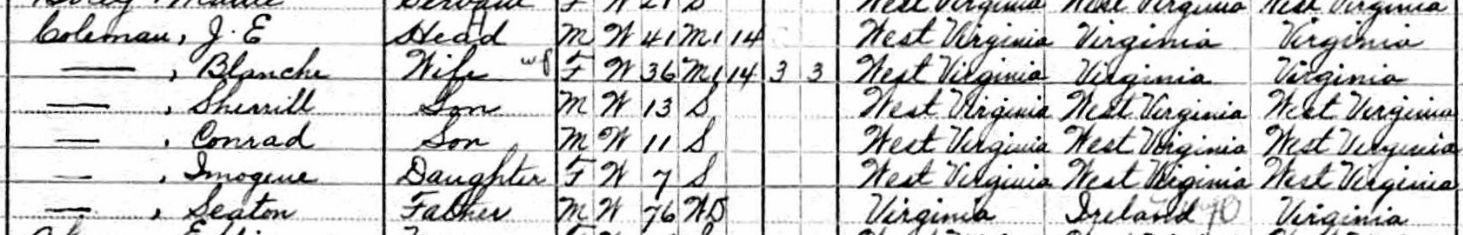 Servant F W 21 S West Virginia West Virginia West Virginia
Coleman, J. E Head M W 41 M1 14 West Virginia Virginia Virginia
— , Blanche Wife F W 36 M1 14 3 3 West Virginia Virginia Virginia
— , Sherrill Son M W 13 S West Virginia West Virginia West Virginia
— , Conrad Son M W 11 S West Virginia West Virginia West Virginia
— , Imogene Daughter F W 7 S West Virginia West Virginia West Virginia
— , Seaton Father M W 76 WD Virginia Ireland Virginia